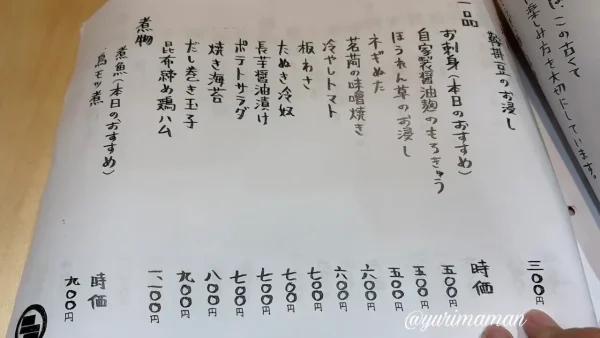 この古くて
楽しみ方を大切にしています。
鞍掛豆のお浸し 三〇〇円
一品
お刺身(本日のおすすめ) 時価
自家製醤油麹のもろきゅう 五〇〇円
ほうれん草のお浸し 五〇〇円
ネギぬた 五〇〇円
茗荷の味噌焼き 六〇〇円
冷やしトマト 六〇〇円
板わさ 七〇〇円
たぬき冷奴 七〇〇円
長芋醤油漬け 七〇〇円
ポテトサラダ 七〇〇円
焼き海苔 八〇〇円
だし巻き玉子 九〇〇円
昆布締め鶏ハム 一、一〇〇円
煮物
煮魚(本日のおすすめ) 時価
鳥モツ煮 九〇〇円
@yurimaman